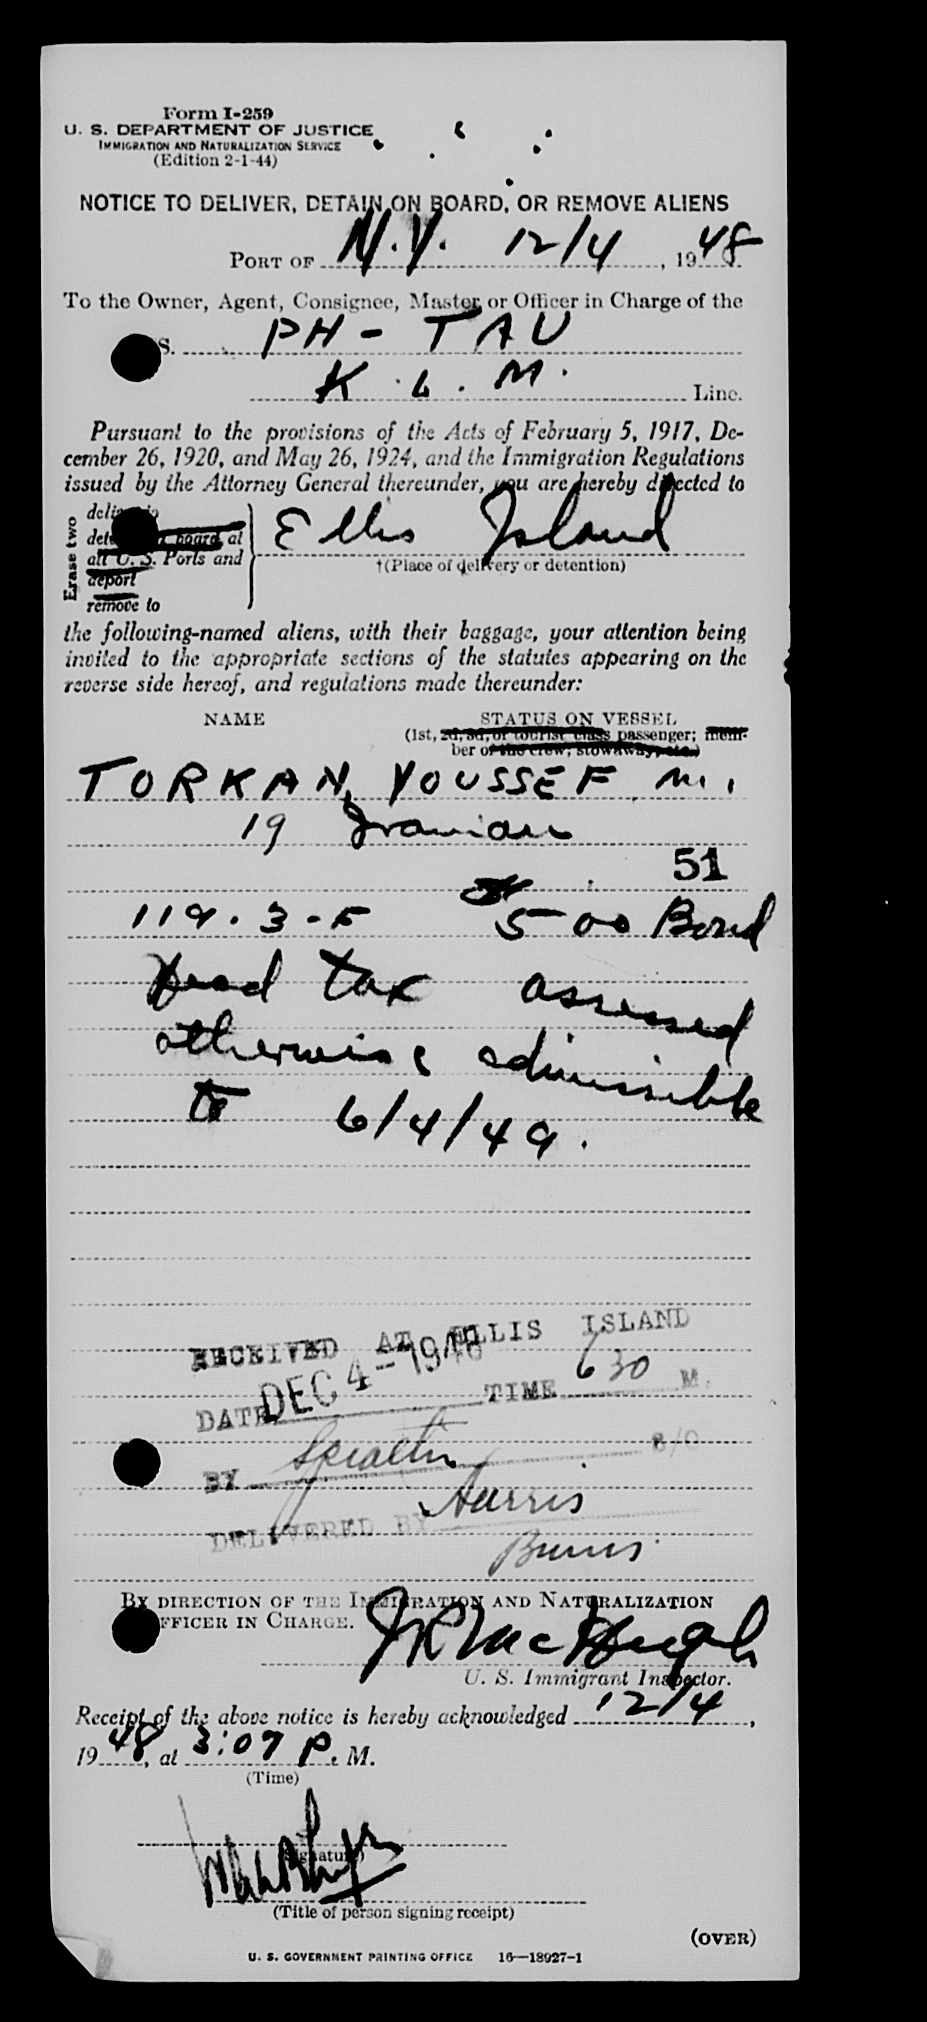 Form I-259
U. S. DEPARTMENT OF JUSTICE
IMMIGRATION AND NATURALIZATION SERVICE
(Edition 2-1-44)
NOTICE TO DELIVER, DETAIN ON BOARD, OR REMOVE ALIENS
PORT OF N.Y. 12/4, 1948
To the Owner, Agent, Consignee, Master or Officer in Charge of the
S. PH-TAU
K.L.M. Line.
Pursuant to the provisions of the Acts of February 5, 1917, De-
cember 26, 1920, and May 26, 1924, and the Immigration Regulations
issued by the Attorney General thereunder, you are hereby directed to
Erase two
board at
all U. S. Ports and
deport
remove to
Ellis Island
†(Place of delivery or detention)
the following-named aliens, with their baggage, your attention being
invited to the appropriate sections of the statutes appearing on the
reverse side hereof, and regulations made thereunder:
NAME STATUS ON VESSEL
(1st, 2d, 3d, or tourist class passenger; mem-
ber of the crew, stowaway, etc.)
TORKAN, YOUSSEF M.
19 Iranian
51
119.3-F 500 Bond
Head tax assessed
otherwise admissible
to 6/4/49.
RECEIVED AT ELLIS ISLAND
DATE DEC 4-1948 TIME 630 M.
BY S/O
DELIVERED BY Harris
Burns
BY DIRECTION OF THE IMMIGRATION AND NATURALIZATION
OFFICER IN CHARGE.
JR MacHugh
U. S. Immigrant Inspector.
Receipt of the above notice is hereby acknowledged 12/4,
1948, at 3:07 P. M.
(Time)
(Signature)
(Title of person signing receipt)
(OVER)
U. S. GOVERNMENT PRINTING OFFICE 16—18927-1